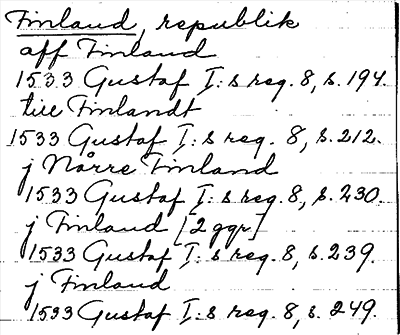 Finland, republik
aff Finland
1533 Gustaf I:s reg. 8, s. 194.
till Finlandt
1533 Gustaf I:s reg. 8, s. 212.
j Nårre Finland
1533 Gustaf I:s reg. 8, s. 230.
j Finland [2 ggr]
1533 Gustaf I:s reg. 8, s. 239.
j Finland
1533 Gustaf I:s reg. 8, s. 249.